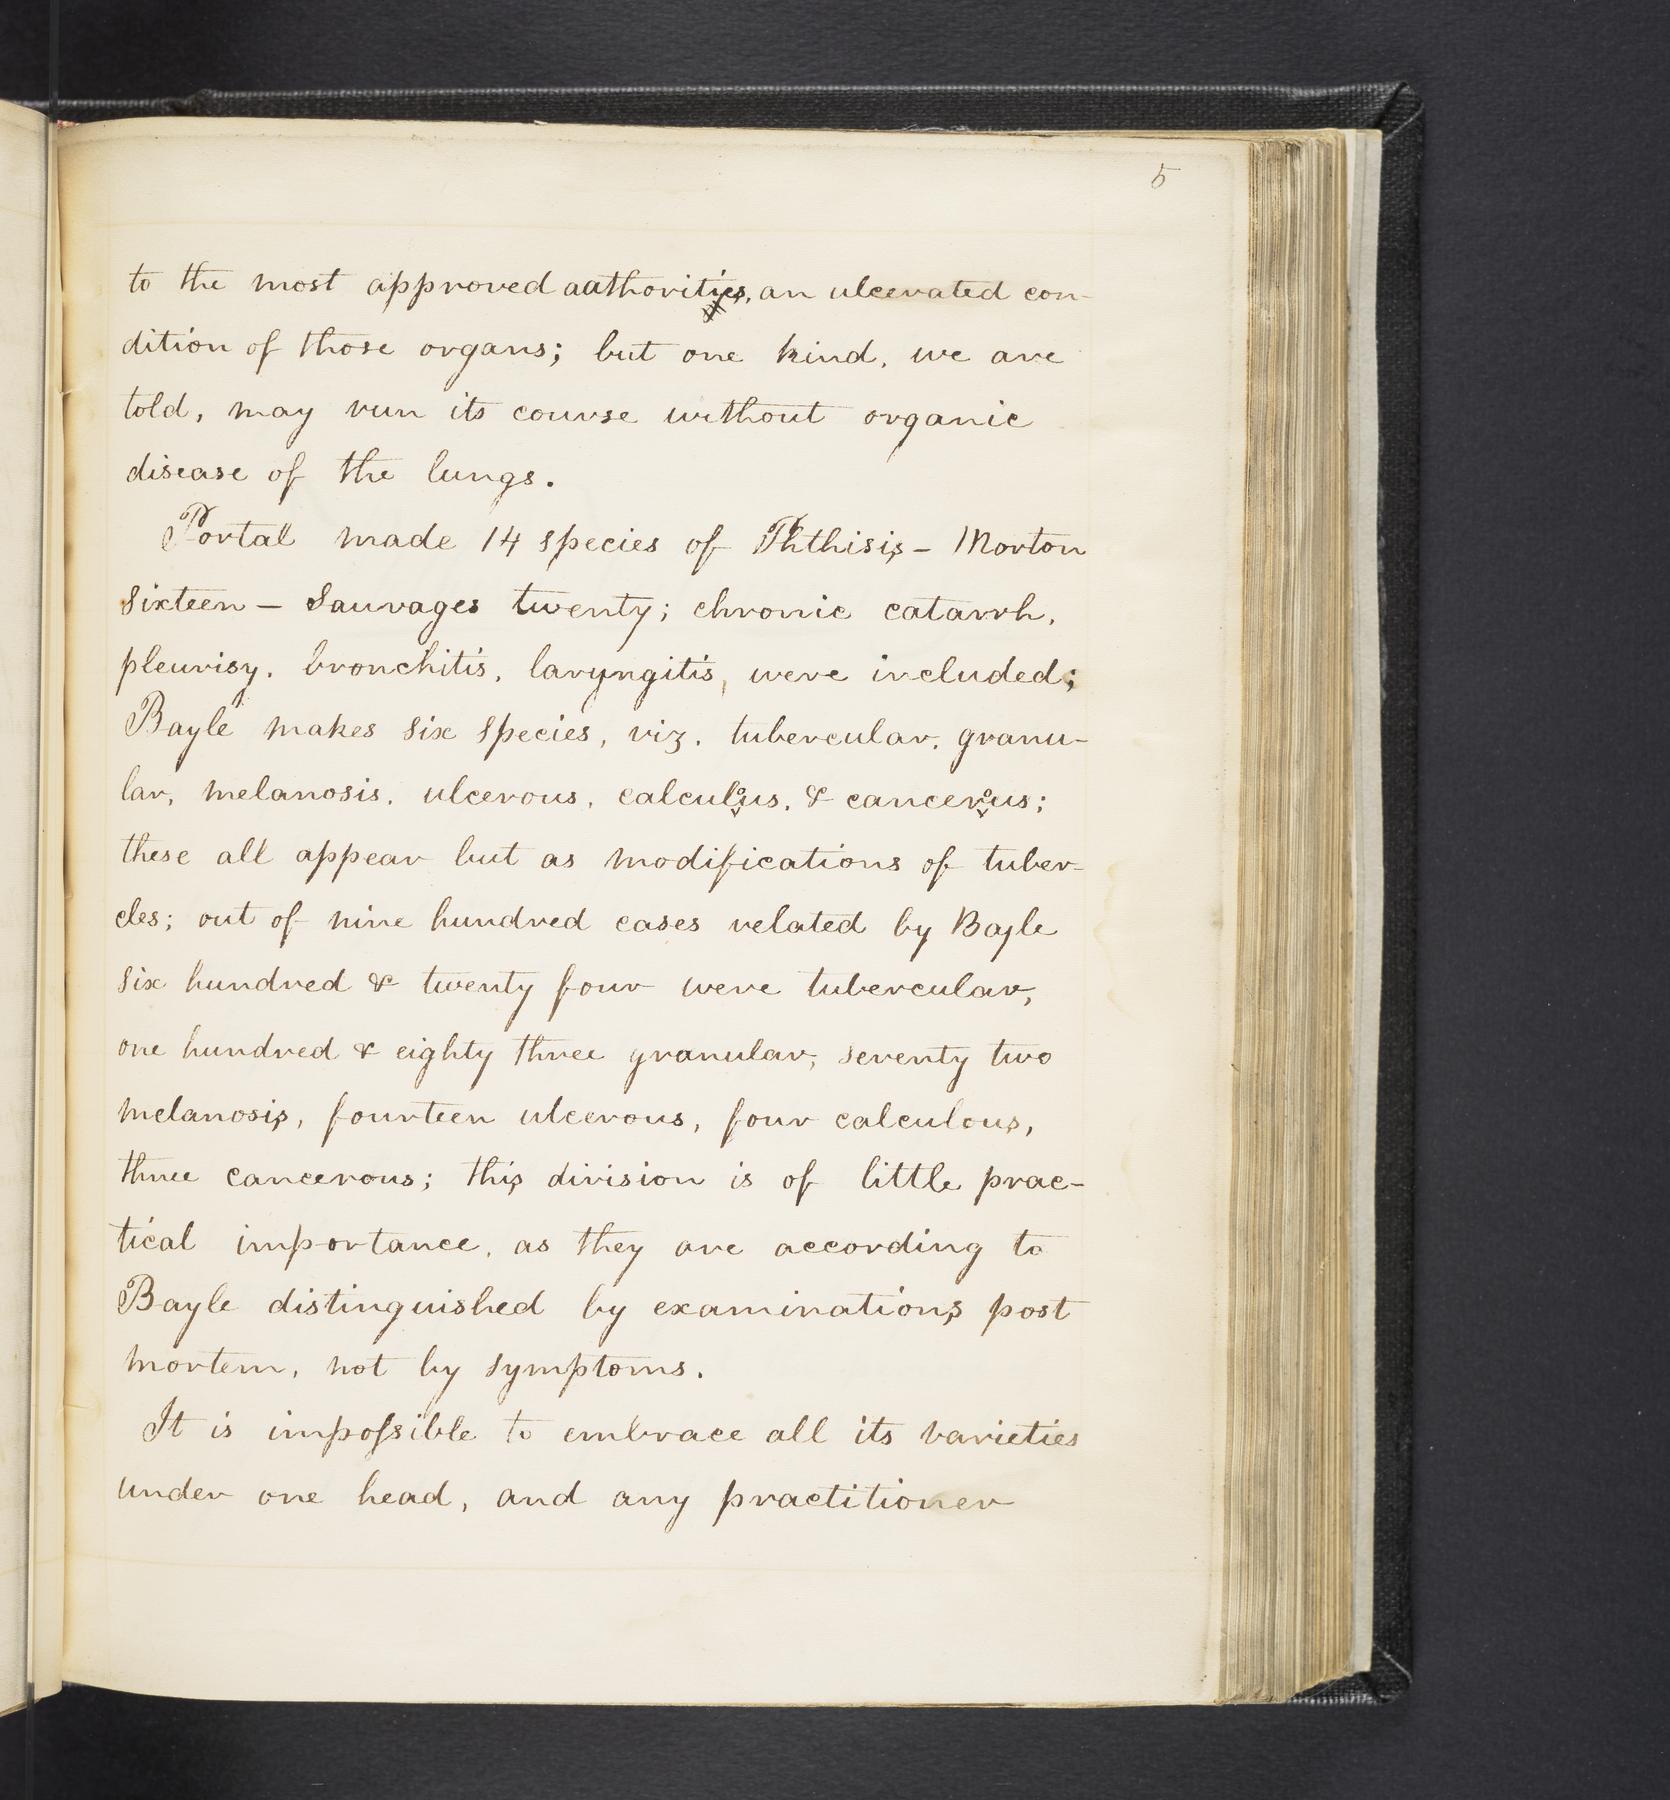 5
to the most approved authorities, an ulcerated con-
dition of those organs; but one kind, we are
told, may run its course without organic
disease of the lungs.
Portal made 14 species of Phthisis - Morton
sixteen - Sauvages twenty; chronic catarrh,
pleurisy, bronchitis, laryngitis, were included;
Bayle makes six species, viz, tubercular, granu-
lar, melanosis, ulcerous, calculous, & cancerous;
these all appear but as modifications of tuber-
cles; out of nine hundred cases related by Bayle
six hundred & twenty four were tubercular,
one hundred & eighty three granular, seventy two
melanosis, fourteen ulcerous, four calculous,
three cancerous; this division is of little prac-
tical importance, as they are according to
Bayle distinguished by examinations post
mortem, not by symptoms.
It is impoſsible to embrace all its varieties
under one head, and any practitioner